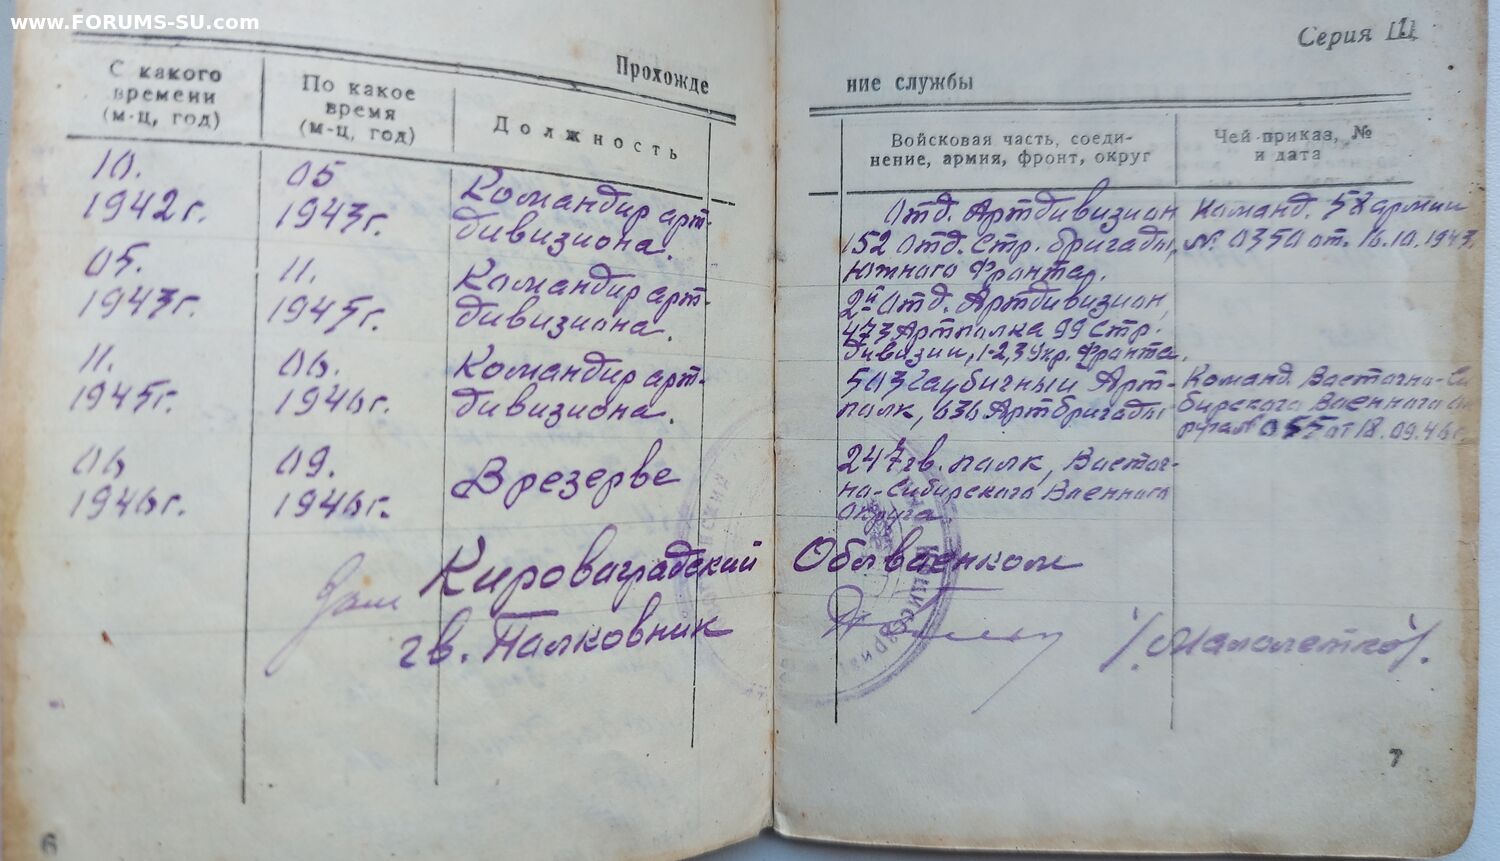 www.FORUMS-SU.com
Серия Щ
Прохожде
ние службы
С какого
времени
(м-ц, год)
По какое
время
(м-ц, год)
Должность
Войсковая часть, соеди-
нение, армия, фронт, округ
Чей приказ, №
и дата
10.
1942 г.
05
1943 г.
Командир арт-
дивизиона.
Отд. Артдивизион
152 отд. Стр. бригады,
Южного Фронта.
Команд. 58 армии
№ 0350 от. 16.10.1943
05.
1943 г.
11.
1945 г.
Командир арт-
дивизиона.
2й отд. Артдивизион,
473 Артполка 99 Стр.
дивизии, 1-2,3 Укр. Фронта.
11.
1945 г.
06.
1946 г.
Командир арт-
дивизиона.
503 Гаубичный Арт-
полк, 036 Артбригады
Команд. Восточно-Си
бирского Военного Ок
руга № от 18.09.46 г.
06
1946 г.
09.
1946 г.
В резерве
247 гв. полк, Восточ-
но-Сибирского Военного
Округа
Кировоградский Облвоенком
гв. Полковник
/Малолетко/.
КОМИССАРИАТ
6
7